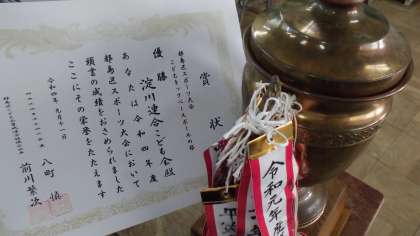 賞状
都島区スポーツ大会
こどもキックベースボールの部
優勝
淀川連合こども会殿
あなたは令和四年度
都島区スポーツ大会において
頭書の成績をおさめられました
ここにその栄誉をたたえます
令和四年九月十一日
八町
前川
令和元年度